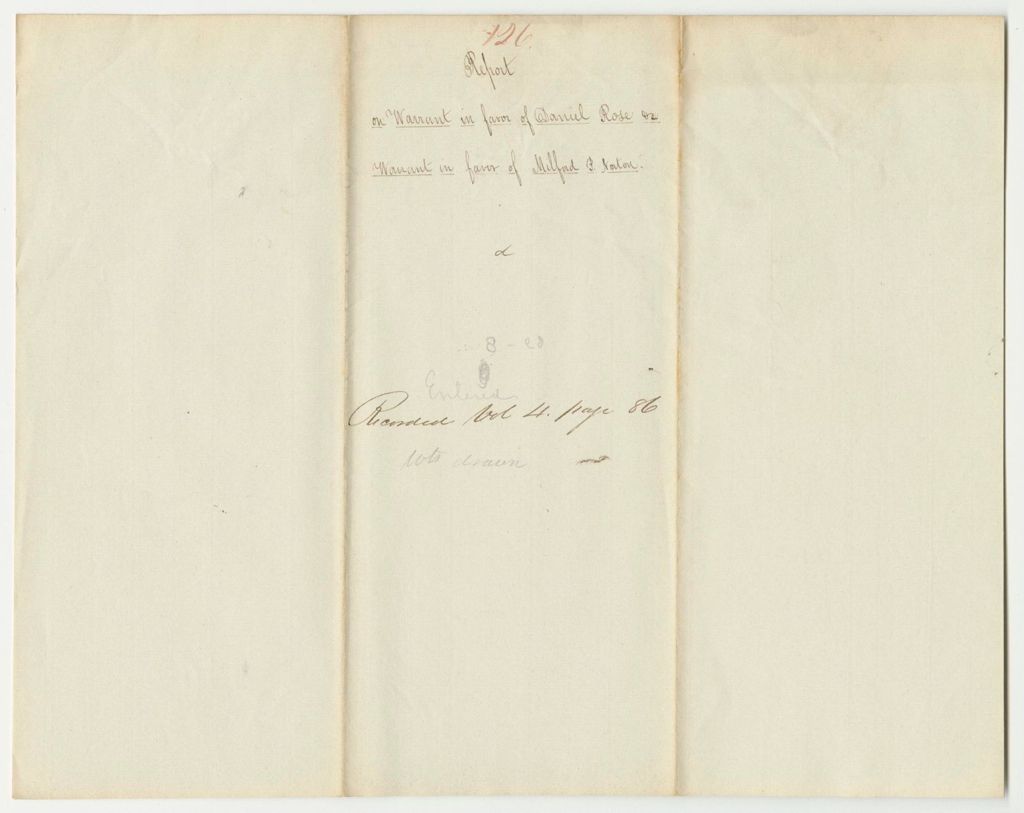 126.
Report
on Warrant in favor of Daniel Rose &
Warrant in favor of Milford P. Norton.
Entered
Recorded Vol 4. page 86
Wts drawn